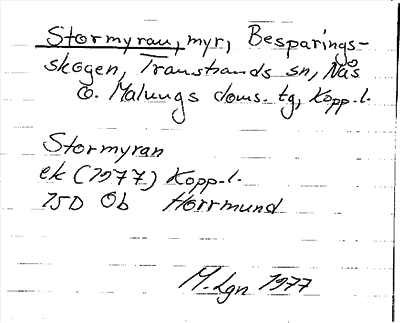 Stormyran, myr, Besparings-
skogen, Transtrands sn, Nås
o. Malungs doms. tg, Kopp. l.
Stormyran
ek (1977) Kopp. l.
15D 0b Horrmund
M. Lgn 1977